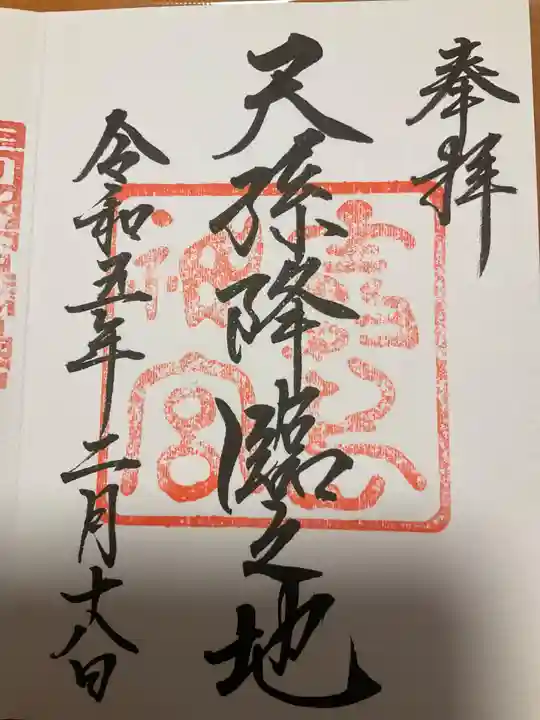 奉拝
天孫降臨之地
令和五年二月十八日